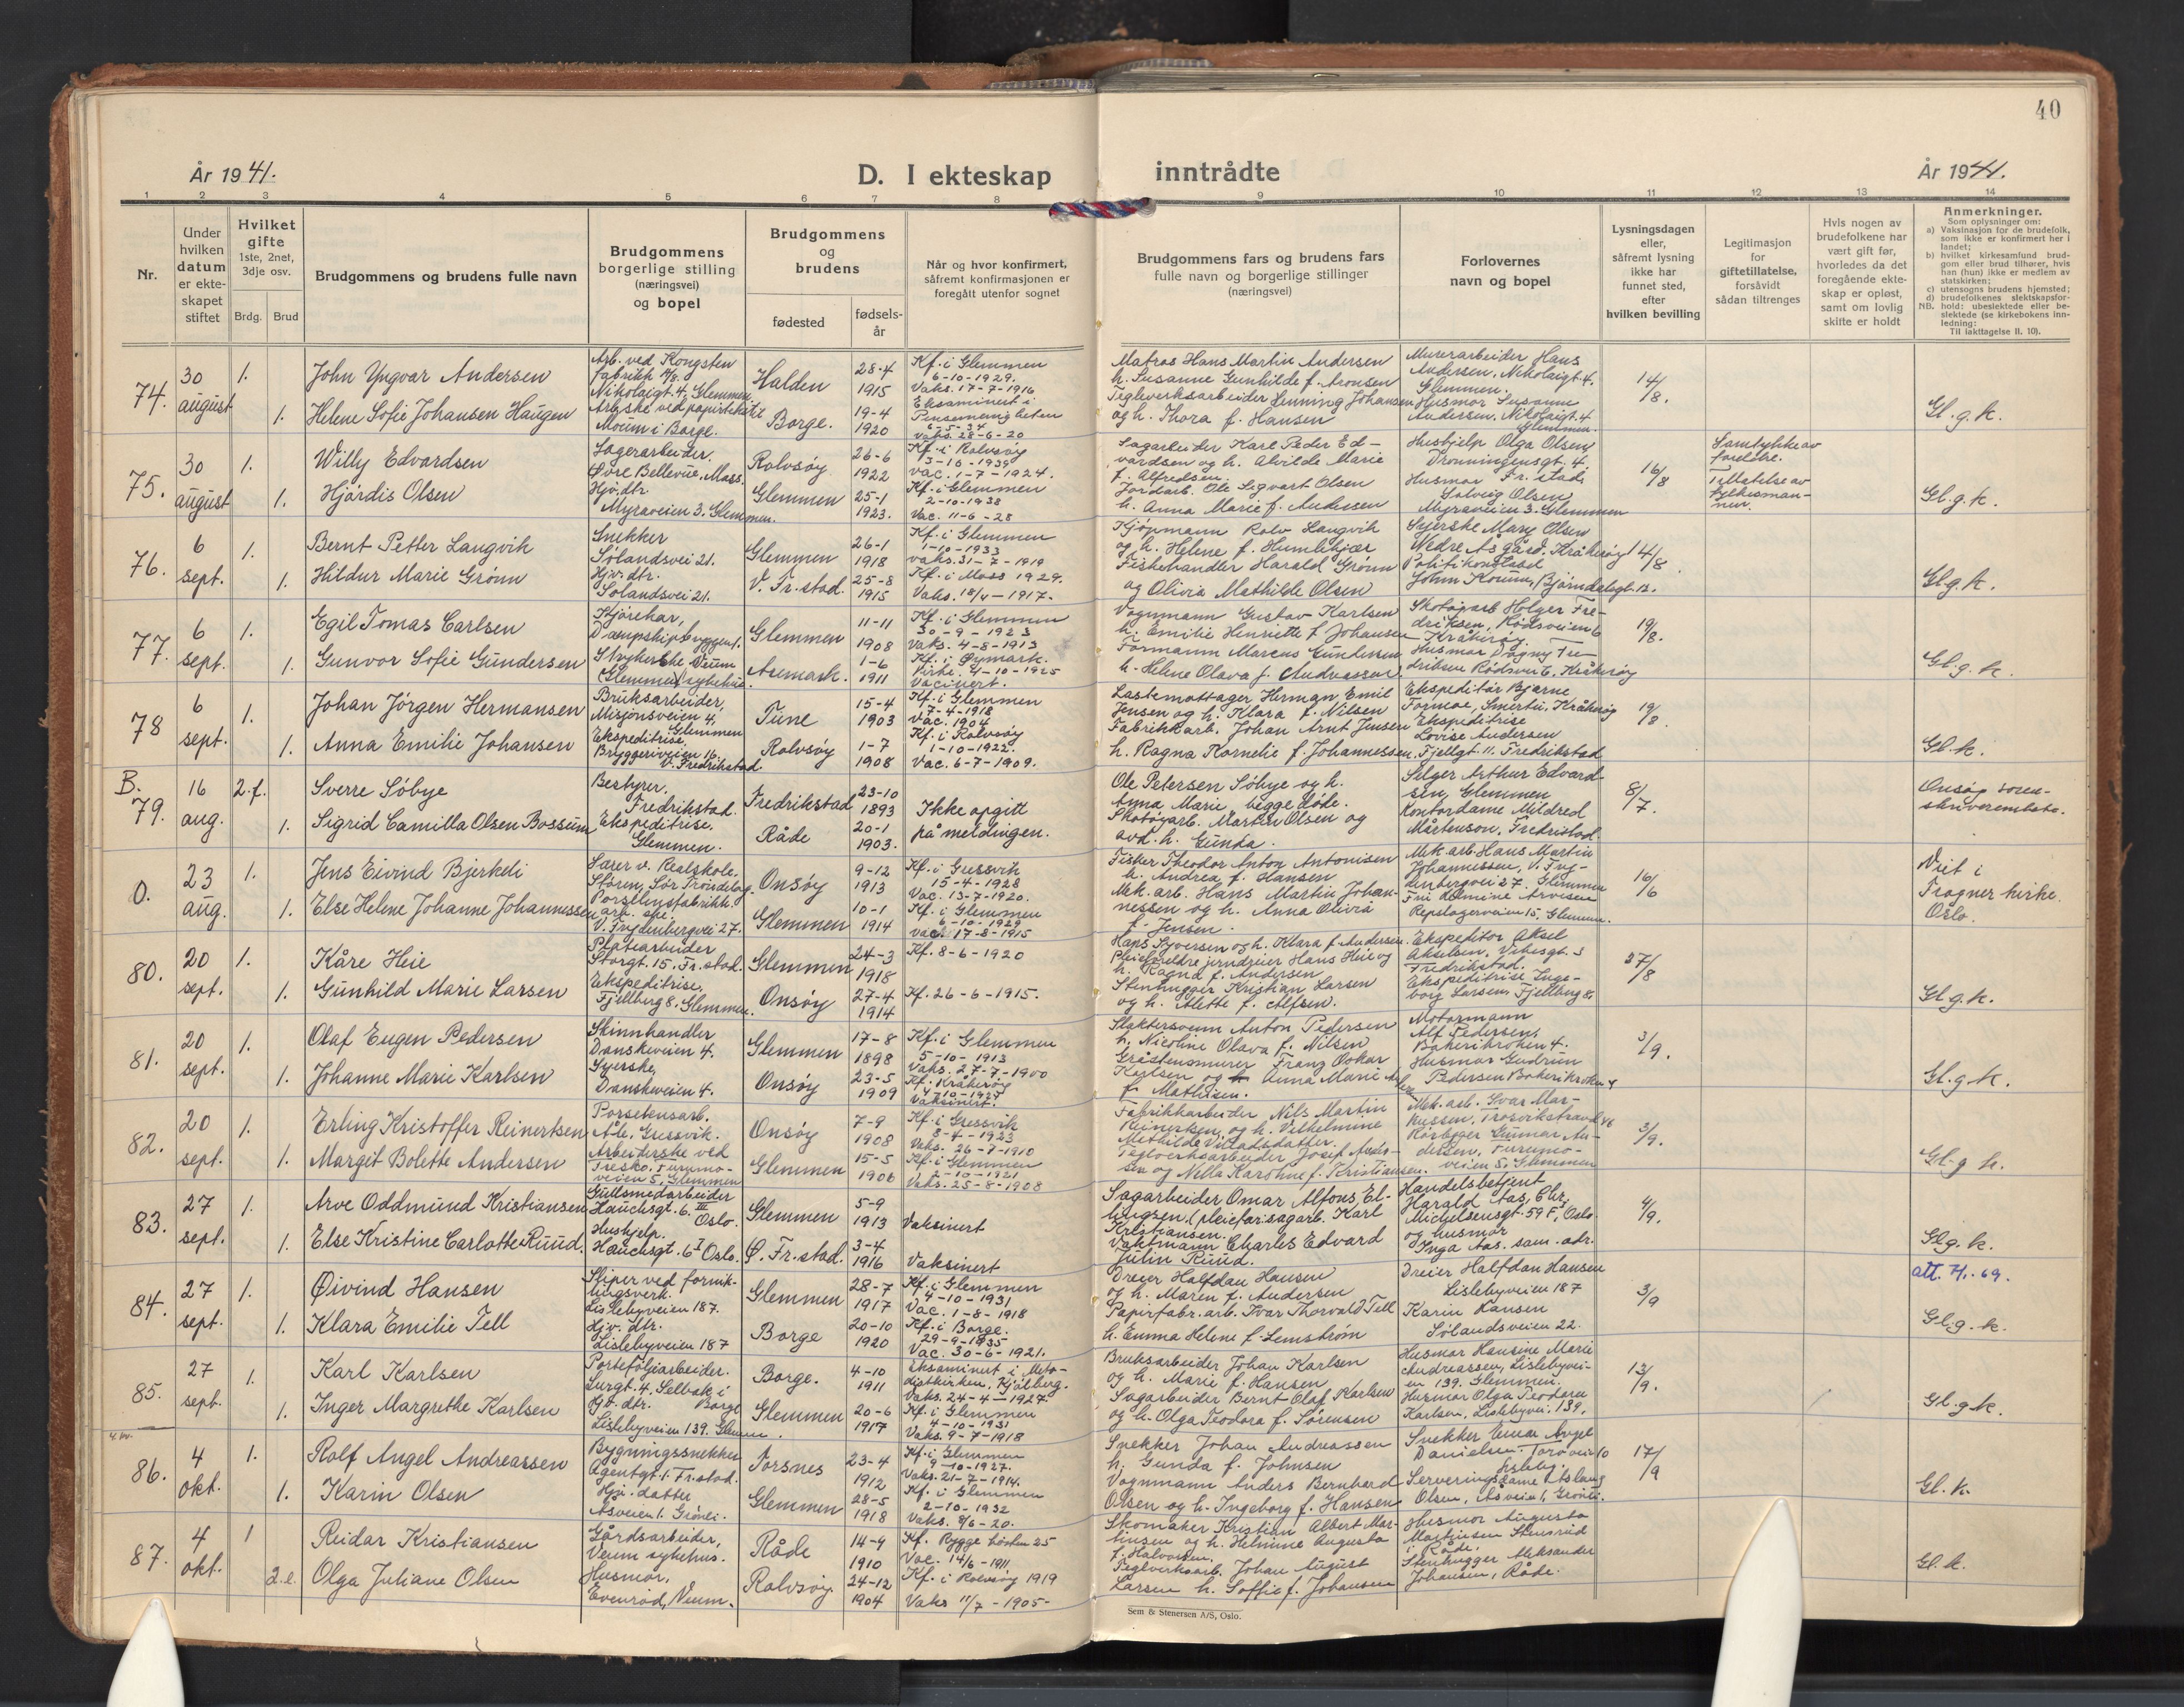 40
År 1941.
D. I ekteskap inntrådte
År 1941.
1 2 3 4 5 6 7 8 9 10 11 12 13 14
Nr.
Under hvilken datum er ekteskapet stiftet
Hvilket gifte 1ste, 2net, 3dje osv.
Brdg. Brud
Brudgommens og brudens fulle navn
Brudgommens borgerlige stilling (næringsvei) og bopel
Brudgommens og brudens
fødested
fødselsår
Når og hvor konfirmert, såfremt konfirmasjonen er foregått utenfor sognet
Brudgommens fars og brudens fars fulle navn og borgerlige stillinger (næringsvei)
Forlovernes navn og bopel
Lysningsdagen eller, såfremt lysning ikke har funnet sted, efter hvilken bevilling
Legitimasjon for giftetillatelse, forsåvidt sådan tiltrenges
Hvis nogen av brudefolkene har vært gift før, hvorledes da det foregående ekteskap er opløst, samt om lovlig skifte er holdt
Anmerkninger.
Som oplysninger om:
a) Vaksinasjon for de brudefolk, som ikke er konfirmert her i landet;
b) hvilket kirkesamfund brudgom eller brud tilhører, hvis han (hun) ikke er medlem av statskirken;
c) utensogns brudens hjemsted;
d) brudefolkenes slektskapsforhold: ubeslektede eller beslektede (se kirkebokens innledning:
NB.
Til iakttagelse II. 10).
74. 30 august 1. John Yngvar Andersen
Arb. ved Kongsten fabrikk A/S. Nikolaigt. 4, Glemmen
Halden 28-4 1915
Kf. i Glemmen 6-10-1929. Vaks. 17-7-1916
Matros Hans Martin Andersen h. Susanne Gunhilde f. Aronsen
Murerarbeider Hans Andersen, Nikolaigt. 4. Glemmen.
14/8.
1. Helene Sofie Johansen Haugen
Moum i Borge.
Borge. 19-4 1920
Eksaminert i Pinsemenigheten 6-5-34 Vaks. 28-6-20
Teglverksarbeider Henning Johansen og h. Thora f. Hansen
Husmor Susanne Andersen, Nikolaigt. 4 Glemmen.
Gl. g. k.
75. 30 august 1. Willy Edvardsen
Lagerarbeider. Øvre Bellevue, Moss.
Rolvsøy 26-6 1922
Kf. i Rolvsøy vac. 1-7-1924.
Lagarbeider Karl Peder Edvardsen og h. Alvilde Marie f. Alfredsen
Hushjelp Olga Olsen, Dronningensgt. 4. Fr.stad
16/8
Samtykke av foreldre.
1. Hjördis Olsen
Hjv. dtr. Myraveien 3. Glemmen.
Glemmen 25-1 1923.
Kf. i Glemmen 2-10-1938 Vac. 11-6-28
Jordarb. Ole Sigvart Olsen h. Anna Marie f. Andersen
Husmor Solveig Olsen, Myraveien 3. Glemmen
Tillatelse av fylkesmannen.
Gl. g. k.
76. 6 sept. 1. Bernt Petter Langvik
Snekker Sølandsvei 21.
Glemmen 26-1 1918
Kf. i Glemmen 1-10-1933 vaks. 31-7-1919
Kjøpmann Rolv Langvik og h. Helene f. Humlekjær
Syerske Mary Olsen Nedre Åsgård. Kråkerøy
14/8.
1. Hildur Marie Grønn
Hjv. dtr. Sølandsvei 21.
V. Fr.stad. 25-8 1915
Kf. i Moss 1929. Vaks. 18/4-1917.
Fiskehandler Harald Grønn og Olivia Mathilde Olsen
Politikonstabel John Korum, Bjørndalsgt. 12.
Gl. g. k.
77. 6 sept. 1. Egil Tomas Carlsen
Kjørekar, Dampskipbryggen 1.
Glemmen 11-11 1908
Kf. i Glemmen 30-9-1923 Vaks. 4-8-1913
Vognmann Gustav Karlsen h. Emilie Henriette f. Johansen
Skotøyarb. Holger Fredriksen, Rødsveien 6 Kråkerøy
19/8.
1. Gunvor Sofie Gundersen
Strykerske Veum Glemmen sykehus
Aremark. 1-6 1911
Kf. i Øymark. kirke. 4-10-1925 Vacinert.
Formann Marcus Gundersen h. Helene Olava f. Andreassen
Husmor Dagny Fredriksen Rødsvei 6. Kråkerøy
Gl. g. k.
78 6 sept. 1. Johan Jörgen Hermansen
Bruksarbeider, Misjonsveien 4, Glemmen
Tune 15-4 1903
Kf. i Glemmen 7-4-1918 Vac. 1904
Lastemottager Herman Emil Jensen og h. Klara f. Nilsen
Ekspeditör Bjarne Formoe, Smertu, Kråkerøy
19/8.
1. Anna Emilie Johansen
Ekspeditrise, Bryggeriveien 16. V. Fredrikstad.
Rolvsøy 1-7 1908
Kf. i Rolvsøy 1-10-1922. Vac. 6-7-1909.
Fabrikkarb. Johan Arnt Jensen h. Ragna Kornelie f. Johannessen.
Ekspeditrise Lovise Andersen Fjellgt. 11. Fredrikstad
Gl. k.
B. 79. 16 aug. 2. f. Sverre Søbye
Bestyrer, Fredrikstad.
Fredrikstad 23-10 1893
Ikke opgitt på meldingen.
Ole Petersen Søbye og h. Anna Marie, begge døde.
Selger Arthur Edvardsen, Glemmen
8/7.
Onsøy sorenskriverembete.
1. Sigrid Camilla Olsen Bossum
Ekspeditrise. Glemmen.
Råde 20-1 1903.
Skotøyarb. Martin Olsen og avd. h. Gunda.
Kontordame Mildred Mårtenson, Fredrikstad.
O. 23 aug. 1. Jens Eivind Bjerkedi
Lærer v. Realskole. Støren, Sør Trøndelag.
Onsøy 9-12 1913
Kf. i Gressvik 15-4-1928 Vac. 13-7-1920.
Fisker Theodor Anton Antonisen h. Andrea f. Hansen
Mek. arb. Hans Martin Johannessen, V. Frydenbergvei 27. Glemmen
16/6
Viet i Frogner kirke. Oslo.
1. Else Helene Johanne Johannessen
Porselensfabrikk. arb. ske. V. Frydenbergvei 27.
Glemmen 10-1 1914
Kf. i Glemmen 6-10-1929 Vac. 17-8-1915
Mek. arb. Hans Martin Johannessen og h. Anna Olivia f. Jensen.
Repslagerveien 15, Glemmen.
80. 20 sept. 1. Kåre Heie
Platearbeider Storgt. 15. Fr.stad.
Glemmen 24-3 1918
Kf. 8-6-1920
Hans Syversen og h. Klara f. Andersen. Pleieforeldre jerndreier Hans Heie og h. Ragna f. Andersen
Ekspeditør Aksel Akselsen, Vibesgt. 3 Fredrikstad.
27/8
1. Gunhild Marie Larsen
Ekspeditrise, Fjellberg 8, Glemmen.
Onsøy 27-4 1914
Kf. 26-6-1915.
Stenhugger Kristian Larsen og h. Alette f. Alfsen.
Ekspeditrise Ingeborg Larsen, Fjellberg 8.
Gl. g. k.
81. 20 sept. 1. Olaf Eugen Pedersen
Skinnhandler Danskeveien 4.
Glemmen 17-8 1898
Kf. i Glemmen 5-10-1913 Vaks. 27-7-1900
Slaktersvenn Anton Pedersen h. Nicoline Olava f. Nilsen
Motormann Alf Pedersen, Bakerikroken 4.
3/9.
1. Johanne Marie Karlsen
Syerske, Danskeveien 4.
Onsøy 23-5 1909
Kf. Kråkerøy Vaksinert.
Gråstensmurer Franz Oskar Karlsen og Anna Marie f. Mathisen.
Husmor Gudrun Pedersen Bakerikroken 4
Gl. g. k.
82. 20 sept. 1. Erling Kristoffer Reinertsen
Porselensarb. Ale, Gressvik.
Onsøy 7-9 1908
Kf. i Gressvik 8-4-1923 Vaks. 26-7-1910
Fabrikkarbeider Nils Martin Reinertsen, og h. Vilhelmine Methilde Villadsdatter.
Mek. arb. Ivar Markussen, Trosvikstrand 46
3/9.
1. Margit Bolette Andersen
Arbeiderske ved Tresko, Furumoveien 5, Glemmen
Glemmen 15-5 1906
Kf. i Glemmen 2-10-1921 Vaks. 25-8-1908
Teglverksarbeider Josef Andersen og Nella Karoline f. Kristiansen.
Rørlegger Gunnar Andersen, Furumoveien 5, Glemmen
Gl. g. k.
83. 27 sept. 1. Arve Oddmund Kristiansen
Gullsmedarbeider Hauchsgt. 6. III Oslo.
Glemmen 5-9 1913
Vaksinert
Sagarbeider Omar Alfons Ellingsen. (pleiefar: sagarb. Karl Kristiansen.
Handelsbetjent Harald Aas, Chr. Michelsensgt. 59 F, Oslo.
4/9.
1. Else Kristine Carlotte Ruud.
Hushjelp. Hauchsgt. 6 I Oslo.
Ø. Fr.stad. 3-4 1916
Vaksinert
Vaktmann Charles Edvard Julin Ruud.
og husmor Inga Aas. sam. adr.
Gl. g. k.
84. 27 sept. 1. Øivind Hansen
Sliper ved forniklingsverk. Lislebyveien 187.
Glemmen 28-7 1917
Kf. i Glemmen 4-10-1931 Vac. 1-8-1918
Dreier Halfdan Hansen og h. Maren f. Andersen
Dreier Halfdan Hansen Lislebyveien 187
3/9
att. 7/1.69.
1. Klara Emilie Tell
Hjv. dtr. Lislebyveien 187
Borge 20-10 1920
Kf. i Borge. 29-9-1935 Vac. 30-6-1921.
Papirfabr. arb. Ivar Thorvald Tell h. Emma Helene f. Lemstrøm
Karin Hansen Sølandsveien 22.
Gl. g. k.
85. 27 sept. 1. Karl Karlsen
Porteføljearbeider. Lurgt. 4. Selbak i Borge
Borge. 4-10 1911
Eksaminert i Metodistkirken, Kjølberg. Vaks. 24-4-1927
Bruksarbeider Johan Karlsen og h. Marie f. Hansen
Husmor Hansine Marie Andreassen, Lislebyveien 139. Glemmen.
13/9.
1. Inger Margrethe Karlsen
Hjv. dtr. Lislebyveien 139. Glemmen.
Glemmen 20-6 1917
Kf. i Glemmen 4-10-1931 Vaks. 9-7-1918
Sagarbeider Bernt Olaf Karlsen og h. Olga Teodora f. Sørensen
Husmor Olga Teodora Karlsen, Lislebyvei. 139.
Gl. g. k.
86. 4 okt. 1. Rolf Angel Andreassen
Bygningssnekker Agentgt. 1. Fr.stad.
Torsnes 23-4 1912
Kf. i Glemmen 9-10-1927. Vaks. 21-7-1914.
Snekker Johan Andreassen h. Gunda f. Johnsen
Snekker Einar Angel Danielsen. Torøvei 10 Lisleby.
17/9
1. Karin Olsen
Hjv. datter Åsveien 1. Grønli.
Glemmen 28-5 1918
Kf. i Glemmen 2-10-1932 Vaks. 8/6-20.
Vognmann Anders Bernhard Olsen og h. Ingeborg f. Hansen
Serveringsdame Aslaug Olsen, Åsveien 1, Grønli.
Gl. k.
87. 4 okt. 1 Reidar Kristiansen
Gårdsarbeider, Veum sykehus.
Råde 14-9 1910
Kf. Rygge høsten 25 Vac. 14/6-1911
Skomaker Kristian Albert Martinsen og h. Helmine Augusta f. Halvorsen.
Husmor Augusta Martinsen Stensrud i Råde.
2. e. Olga Juliane Olsen
Husmor, Evenrød, Veum.
Rolvsøy. 24-12 1904
Kf. i Rolvsøy 1919 Vaks 11/7-1905-
Teglverksarb. Johan August Larsen h. Soffie f. Johansen
Stenhugger Aleksander Johansen, Råde.
Gl. k.
Sem & Stenersen A/S, Oslo.